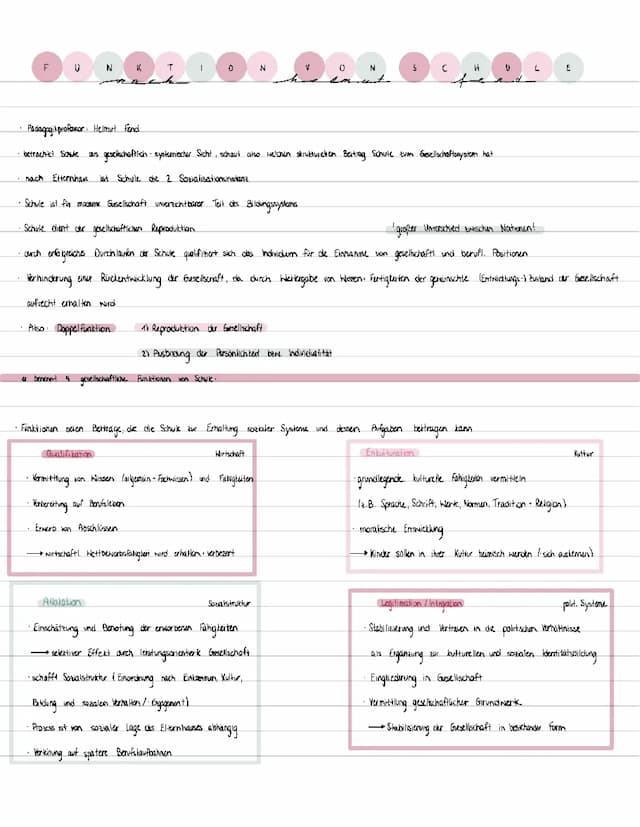 FUNKTION VON SCHULE
nach helmut fend
· Pädagogikprofessor: Helmut Fend
· betrachtet Schule aus gesellschaftlich-systemischer Sicht, schaut also welchen strukturellen Beitrag Schule zum Gesellschaftssystem hat
· nach Elternhaus ist Schule die 2. Sozialisationsinstanz
· Schule ist für moderne Gesellschaft unverzichtbarer Teil des Bildungssystems
· Schule dient der gesellschaftlichen Reproduktion !großer Unterschied zwischen Nationen!
· durch erfolgreiches Durchlaufen der Schule qualifiziert sich das Individuum für die Einnahme von gesellschaftl. und berufl. Positionen
· Verhinderung einer Rückentwicklung der Gesellschaft, da durch Weitergabe von Wissen + Fertigkeiten der gewünschte (Entwicklungs-) Zustand der Gesellschaft
aufrecht erhalten wird
· Also: Doppelfunktion 1) Reproduktion der Gesellschaft
2) Ausbildung der Persönlichkeit bzw. Individualität
er benennt 4 gesellschaftliche Funktionen von Schule:
· Funktionen seien Beiträge, die die Schule zur Erhaltung sozialer Systeme und dessen Aufgaben beitragen kann
Qualifikation Wirtschaft
· Vermittlung von Wissen (allgemein + Fachwissen) und Fähigkeiten
· Vorbereitung auf Berufsleben
· Erwerb von Abschlüssen
→ wirtschaftl. Wettbewerbsfähigkeit wird erhalten + verbessert
Enkulturation Kultur
· grundlegende kulturelle Fähigkeiten vermitteln
(z.B. Sprache, Schrift, Werte, Normen, Tradition + Religion)
· moralische Entwicklung
→ Kinder sollen in ihrer Kultur heimisch werden (sich auskennen)
Allokation Sozialstruktur
· Einschätzung und Benotung der erworbenen Fähigkeiten
→ selektiver Effekt durch leistungsorientierte Gesellschaft
· schafft Sozialstruktur (Einordnung nach Einkommen, Kultur,
Bildung und sozialem Verhalten / Engagement)
· Prozess ist von sozialer Lage des Elternhauses abhängig
· Verteilung auf spätere Berufslaufbahnen
Legitimation / Integration polit. Systeme
· Stabilisierung und Vertrauen in die politischen Verhältnisse
als Ergänzung zur kulturellen und sozialen Identitätsbildung
· Eingliederung in Gesellschaft
· Vermittlung gesellschaftlicher Grundwerte
→ Stabilisierung der Gesellschaft in bestehender Form